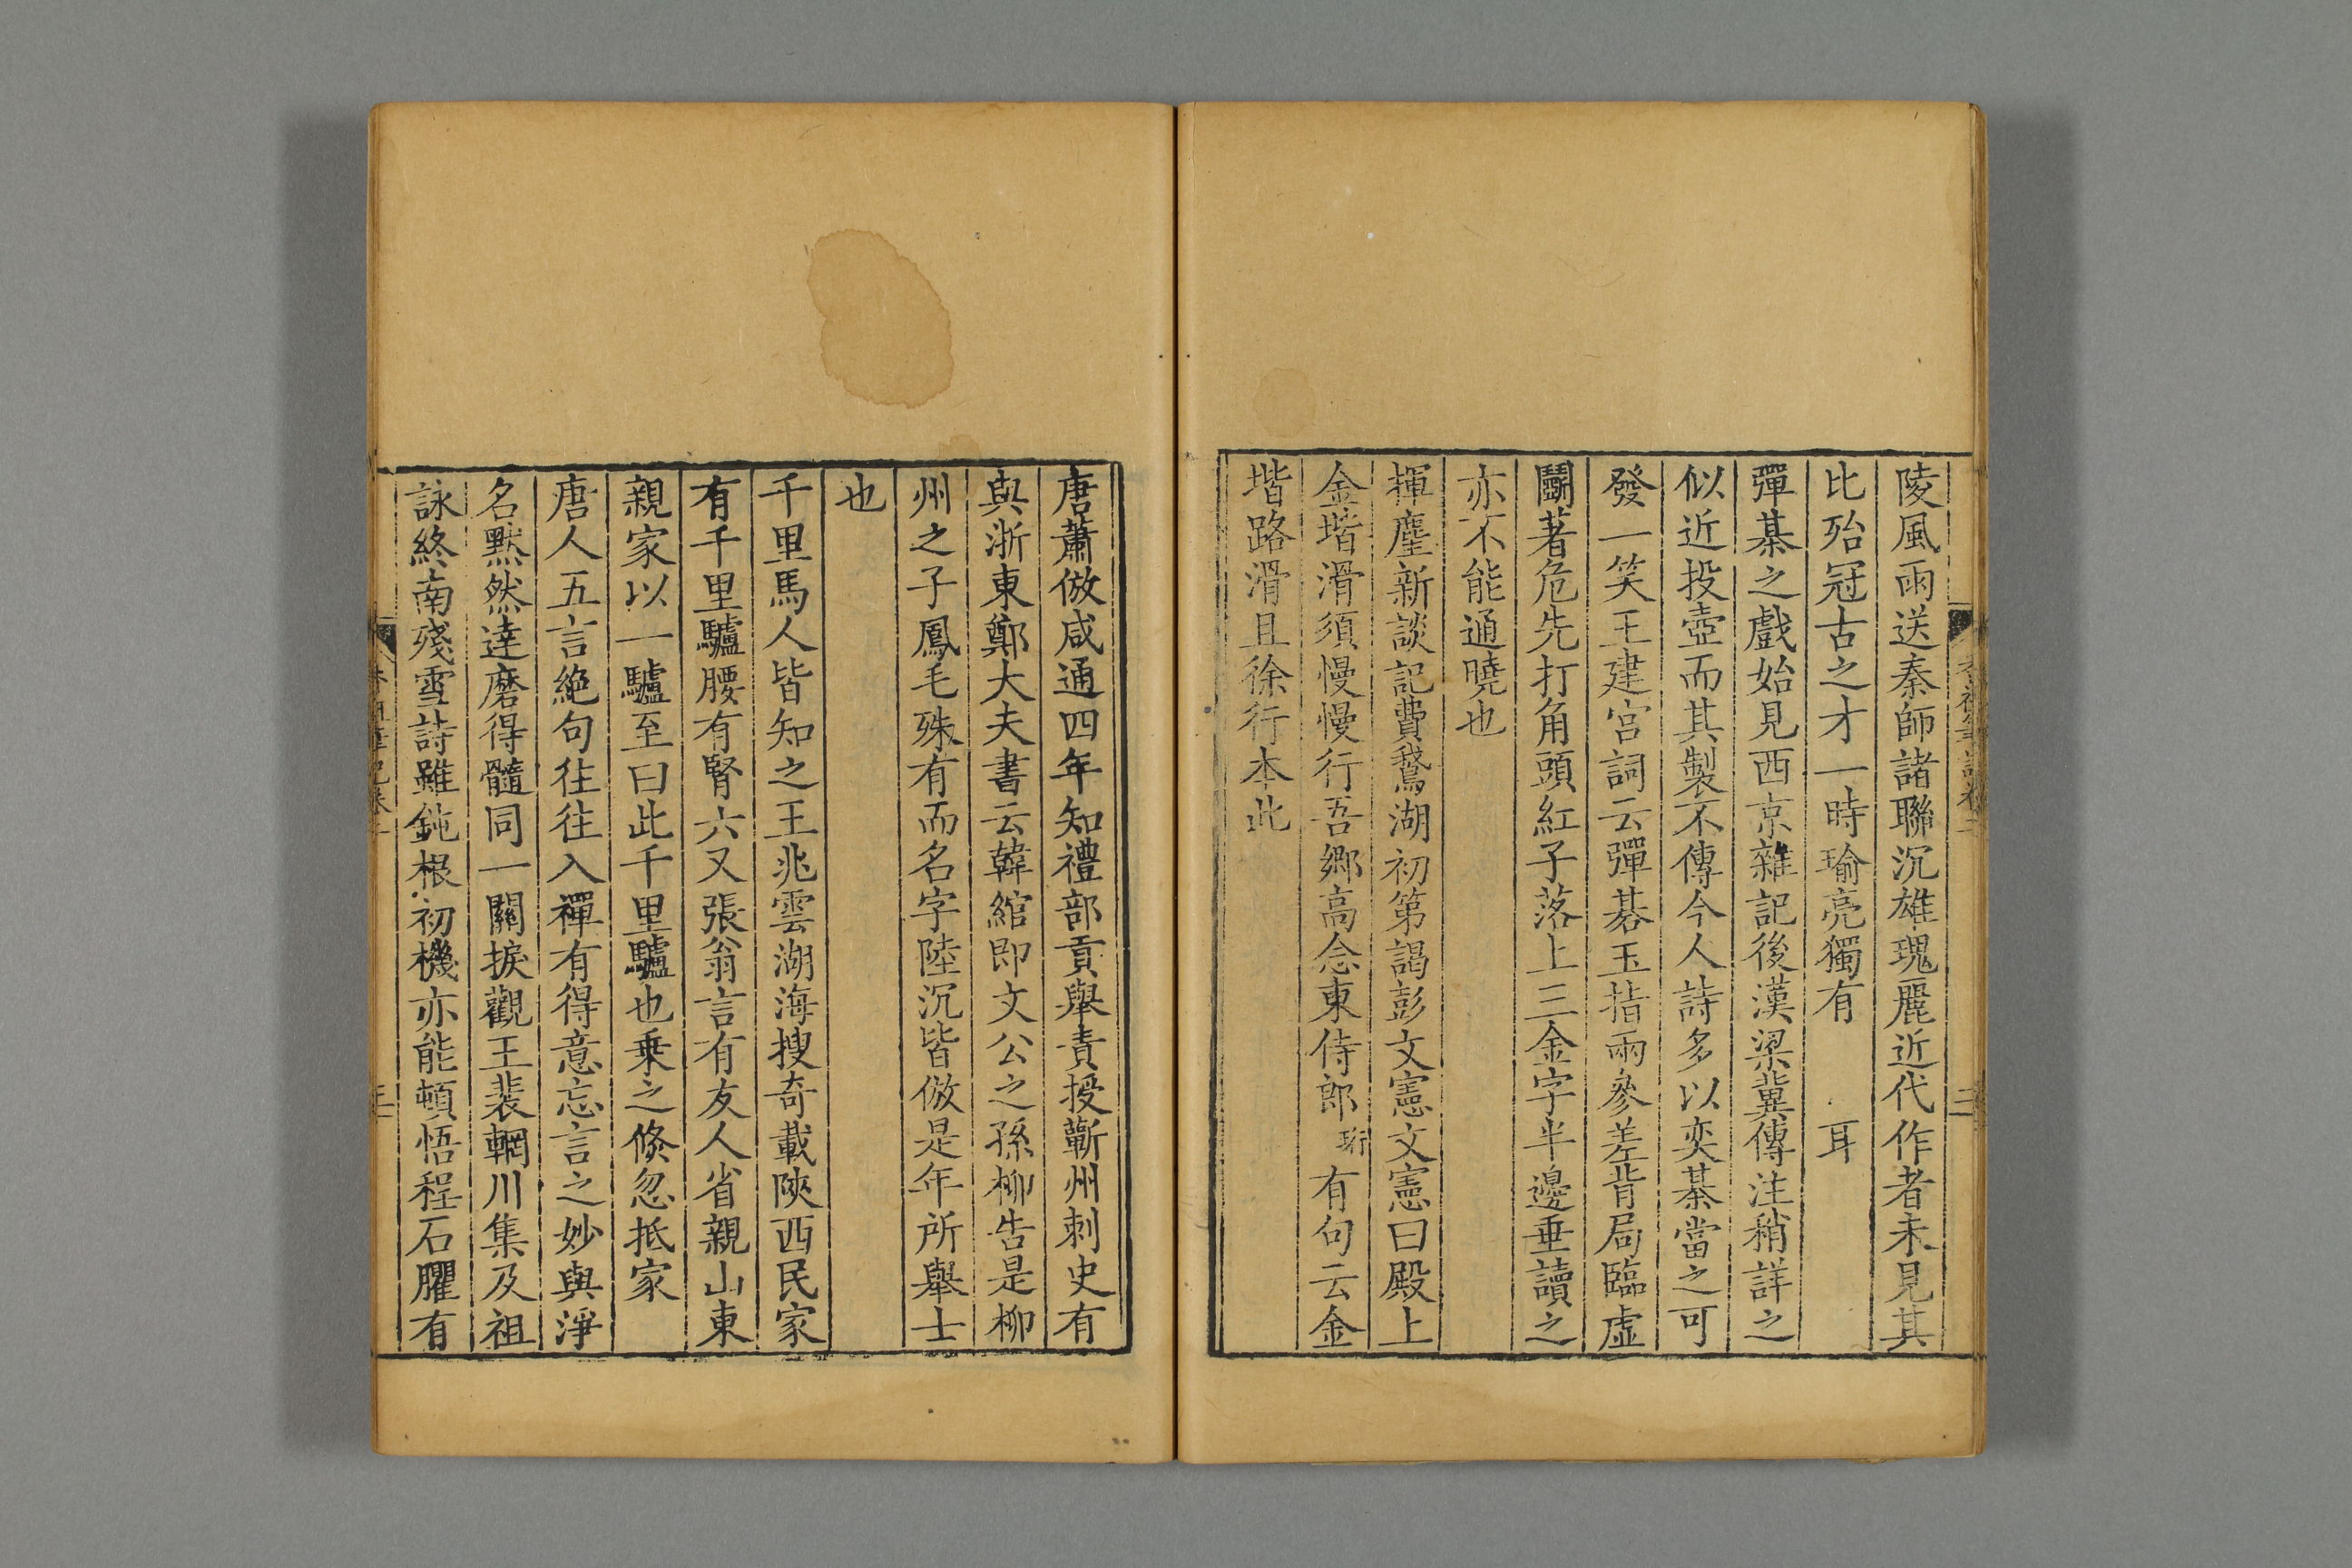 陵風雨送秦師諸聯沉雄瑰麗近代作者未見其
比殆冠古之才一時瑜亮獨有　耳
彈棊之戲始見西京雜記後漢梁冀傳注稍詳之
似近投壺而其製不傳今人詩多以奕棊當之可
發一笑王建宮詞云彈碁玉指兩參差背局臨虛
鬭著危先打角頭紅子落上三金字半邊垂讀之
亦不能通曉也
揮麈新談記費鵞湖初第謁彭文憲文憲曰殿上
金堦滑須慢慢行吾鄉高念東侍郎珩有句云金
堦路滑且徐行本此
唐蕭倣咸通四年知禮部貢舉責授蘄州刺史有
與浙東鄭大夫書云韓綰即文公之孫柳告是柳
州之子鳳毛殊有而名字陸沉皆倣是年所舉士
也
千里馬人皆知之王兆雲湖海搜奇載陝西民家
有千里驢腰有腎六又張翁言有友人省親山東
親家以一驢至曰此千里驢也乗之倐忽抵家
唐人五言絶句往往入禪有得意忘言之妙與淨
名默然達磨得髓同一關捩觀王裴輞川集及祖
詠終南殘雪詩雖鈍根初機亦能頓悟程石臞有